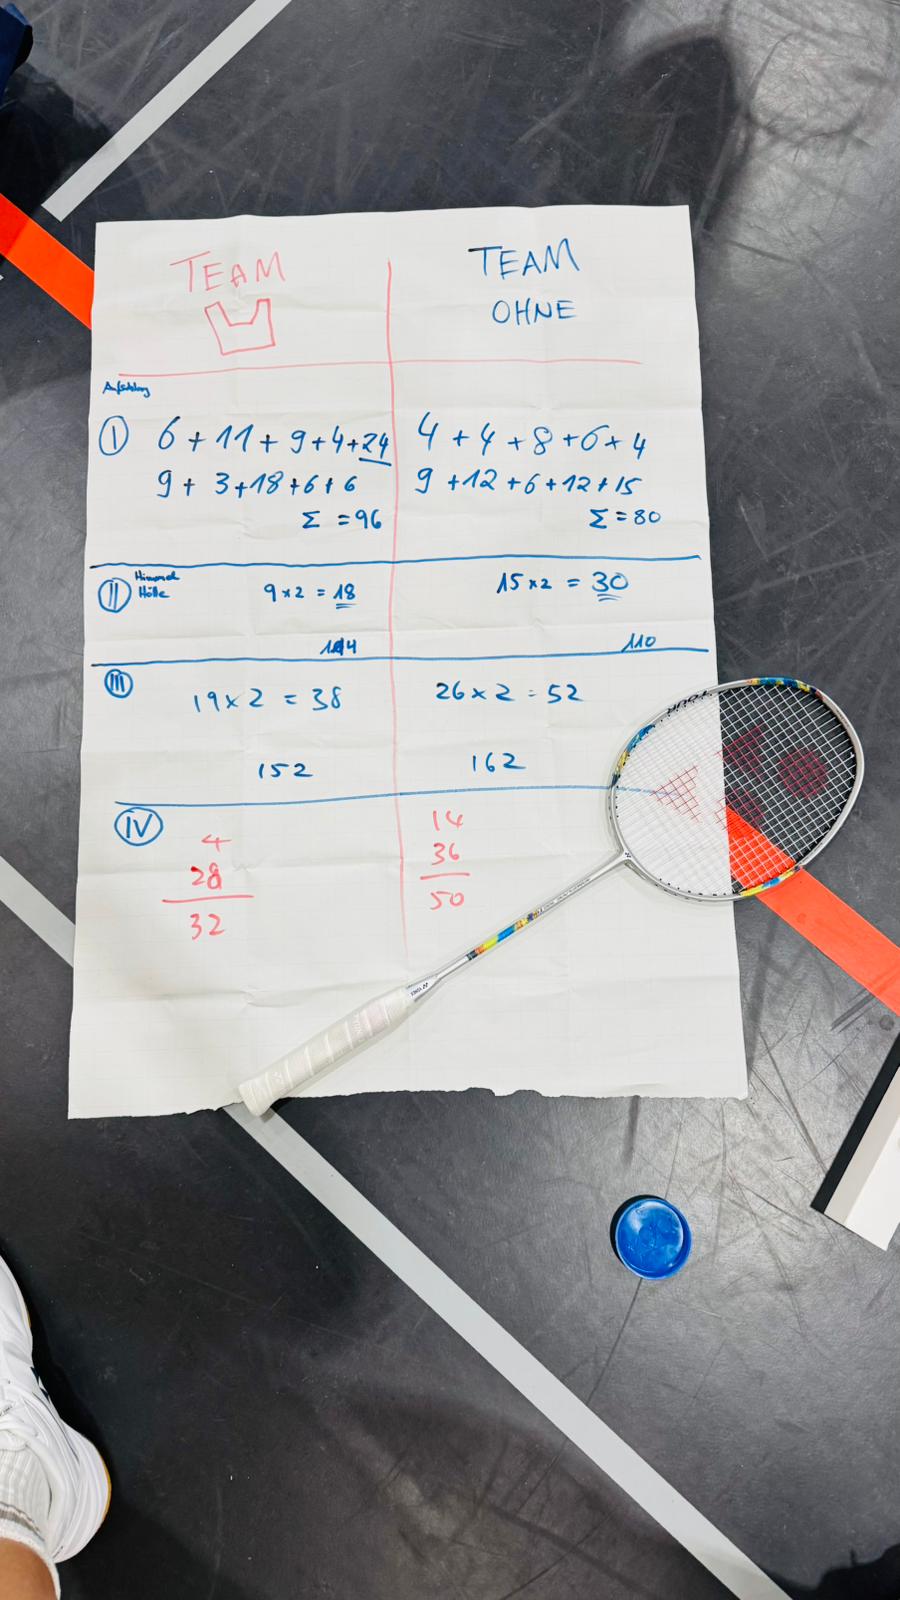 TEAM
TEAM
OHNE
Aufschlag
I 6 + 11 + 9 + 4 + 24
9 + 3 + 18 + 6 + 6
Σ = 96
4 + 4 + 8 + 6 + 4
9 + 12 + 6 + 12 + 15
Σ = 80
II Himmel
Hölle
9 x 2 = 18
114
15 x 2 = 30
110
III
19 x 2 = 38
152
26 x 2 = 52
162
IV
4
28
32
14
36
50
TOUR
YONEX